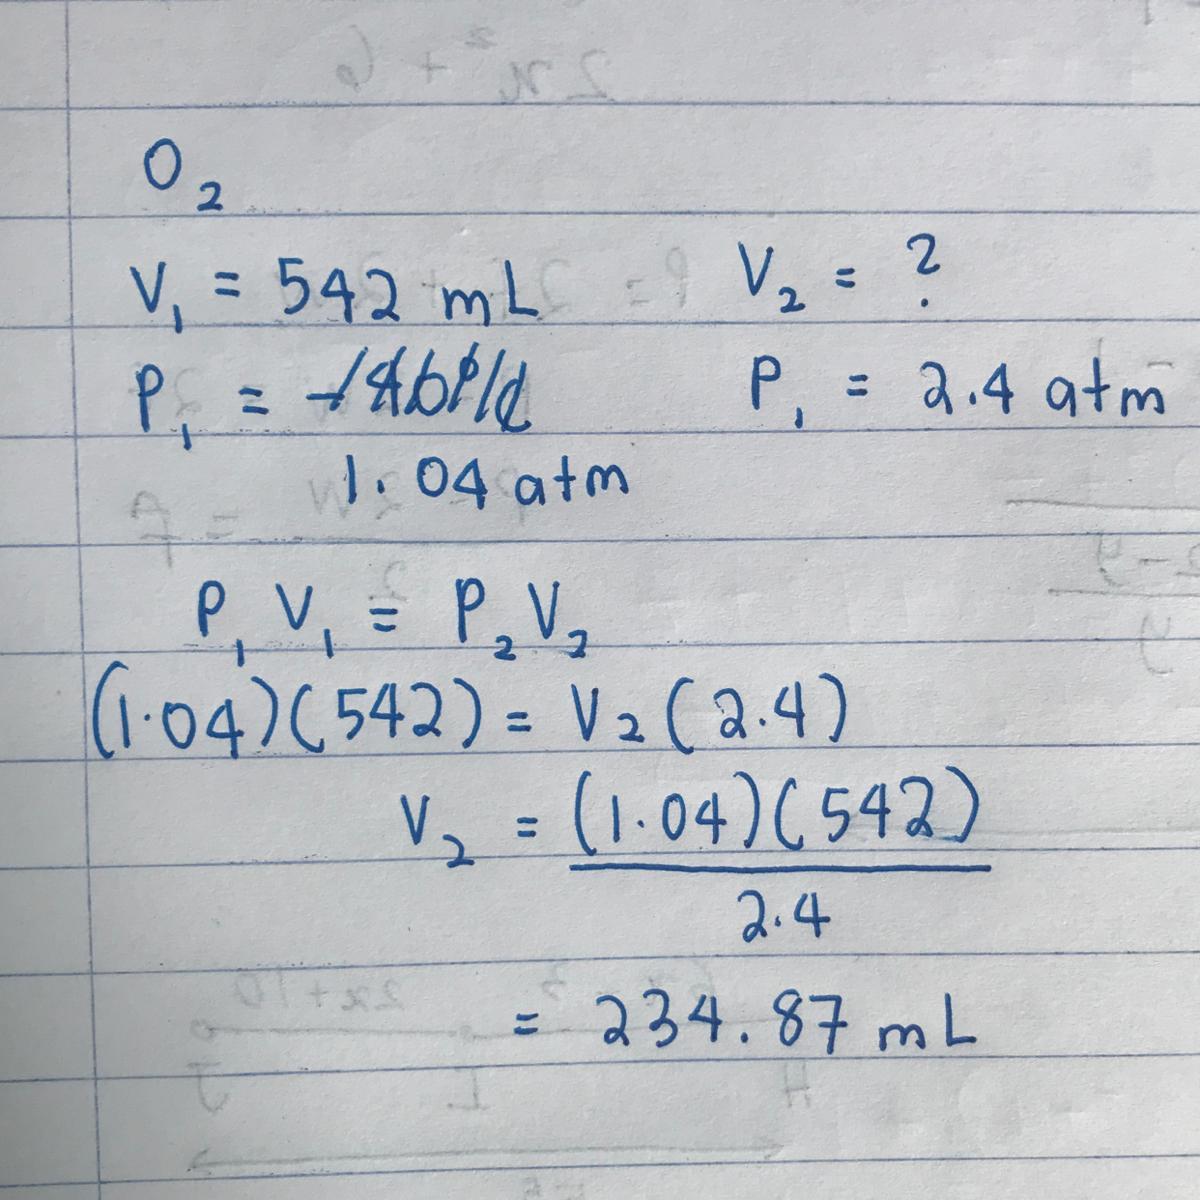 O₂
V₁ = 542 mL V₂ = ?
P₁ = P₁ = 2.4 atm
1.04 atm
P₁ V₁ = P₂ V₂
(1.04)(542) = V₂ (2.4)
V₂ = (1.04)(542)
2.4
= 234.87 mL